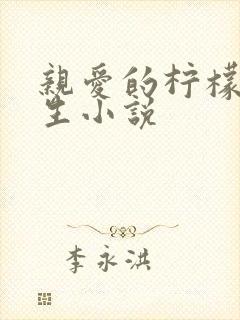 親愛的柠檬
生小説
李永洪